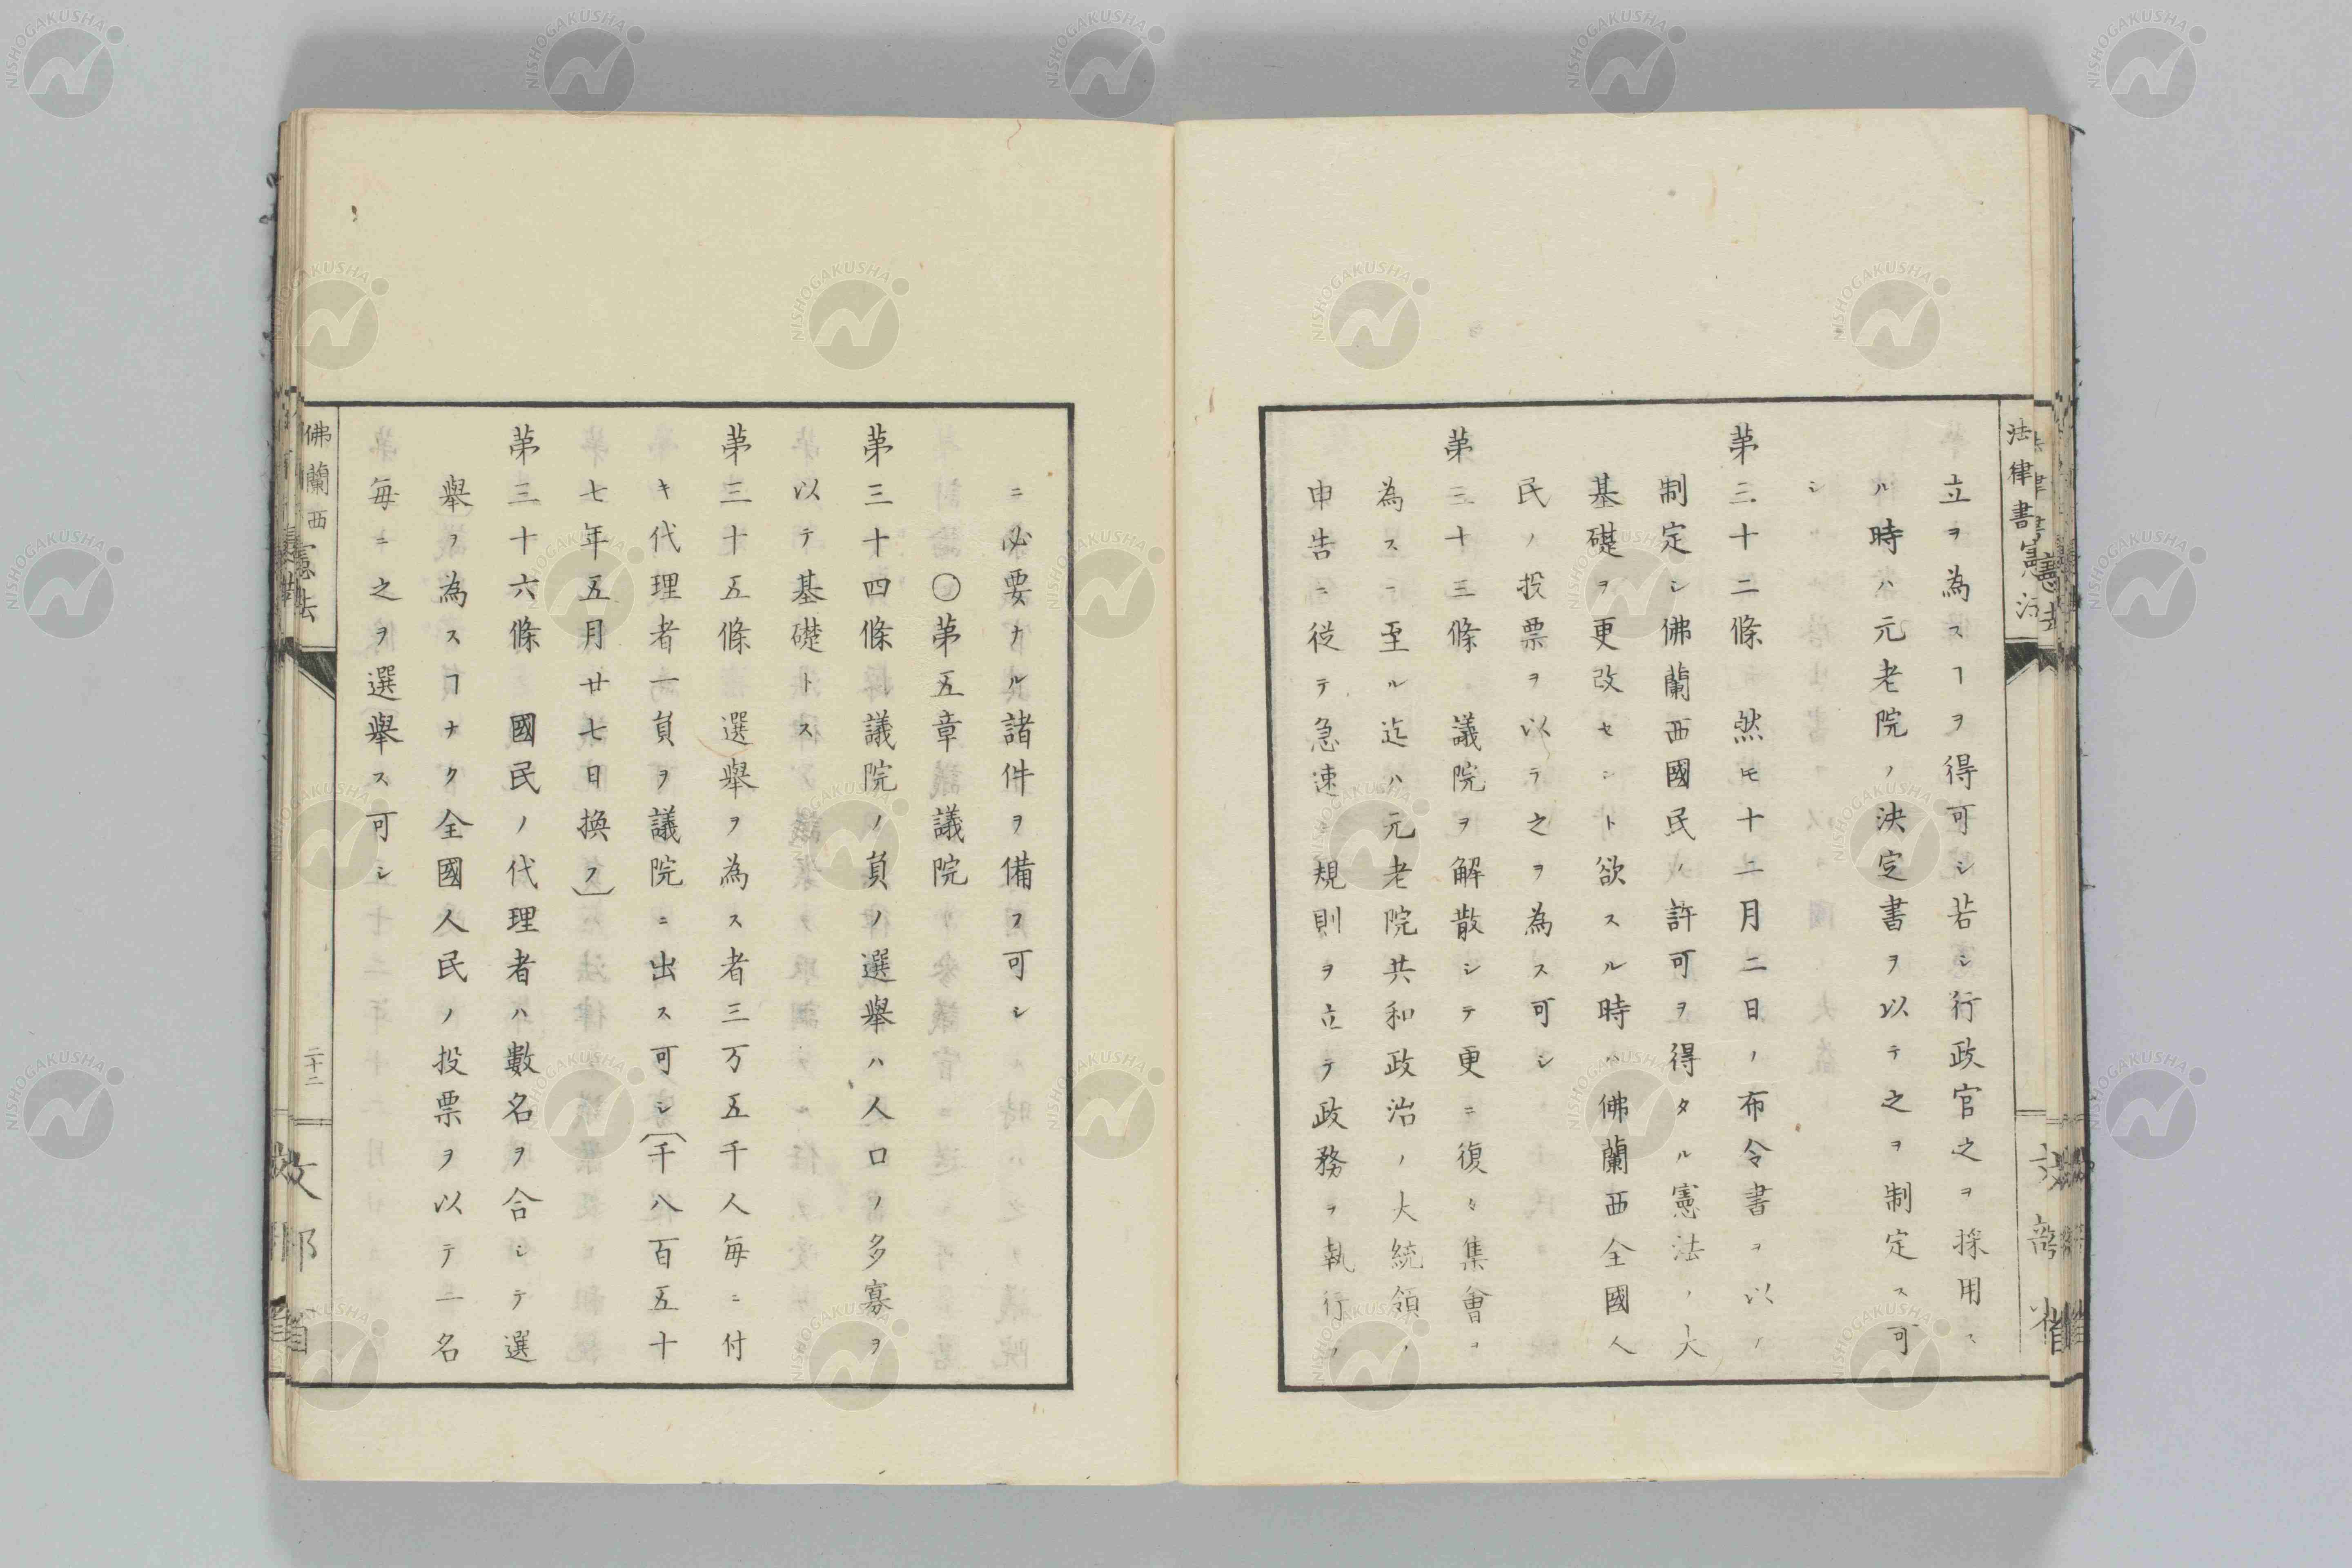 法律書 憲法
立ヲ為スヿヲ得可シ若シ行政官之ヲ採用ス
ル時ハ元老院ノ決定書ヲ以テ之ヲ制定ス可
シ
第三十二條 然モ十二月二日ノ布令書ヲ以ノ
制定シ佛蘭西國民ノ許可ヲ得タル憲法ノ大
基礎ヲ更改セント欲スル時ハ佛蘭西全國人
民ノ投票ヲ以テ之ヲ為ス可シ
第三十三條 議院ヲ解散シテ更ニ復タ集會ヲ
為スニ至ル迄ハ元老院共和政治ノ大統領ノ
申告ニ従テ急速ノ規則ヲ立テ政務ヲ執行ス
ニ必要ナル諸件ヲ備フ可シ
〇第五章議院
第三十四條議院ノ負ノ選舉ハ人口ノ多寡ヲ
以テ基礎トス
第三十五條 選舉ヲ為ス者三万五千人每ニ付
キ代理者一負ヲ議院ニ出ス可シ(千八百五十
七年五月廿七日換フ)
第三十六條 國民ノ代理者ハ數名ヲ合シテ選
舉ヲ為スヿナク全國人民ノ投票ヲ以テ一名
每ニ之ヲ選舉ス可シ
佛蘭西憲法
二十二
文部省
NISHOGAKUSHA